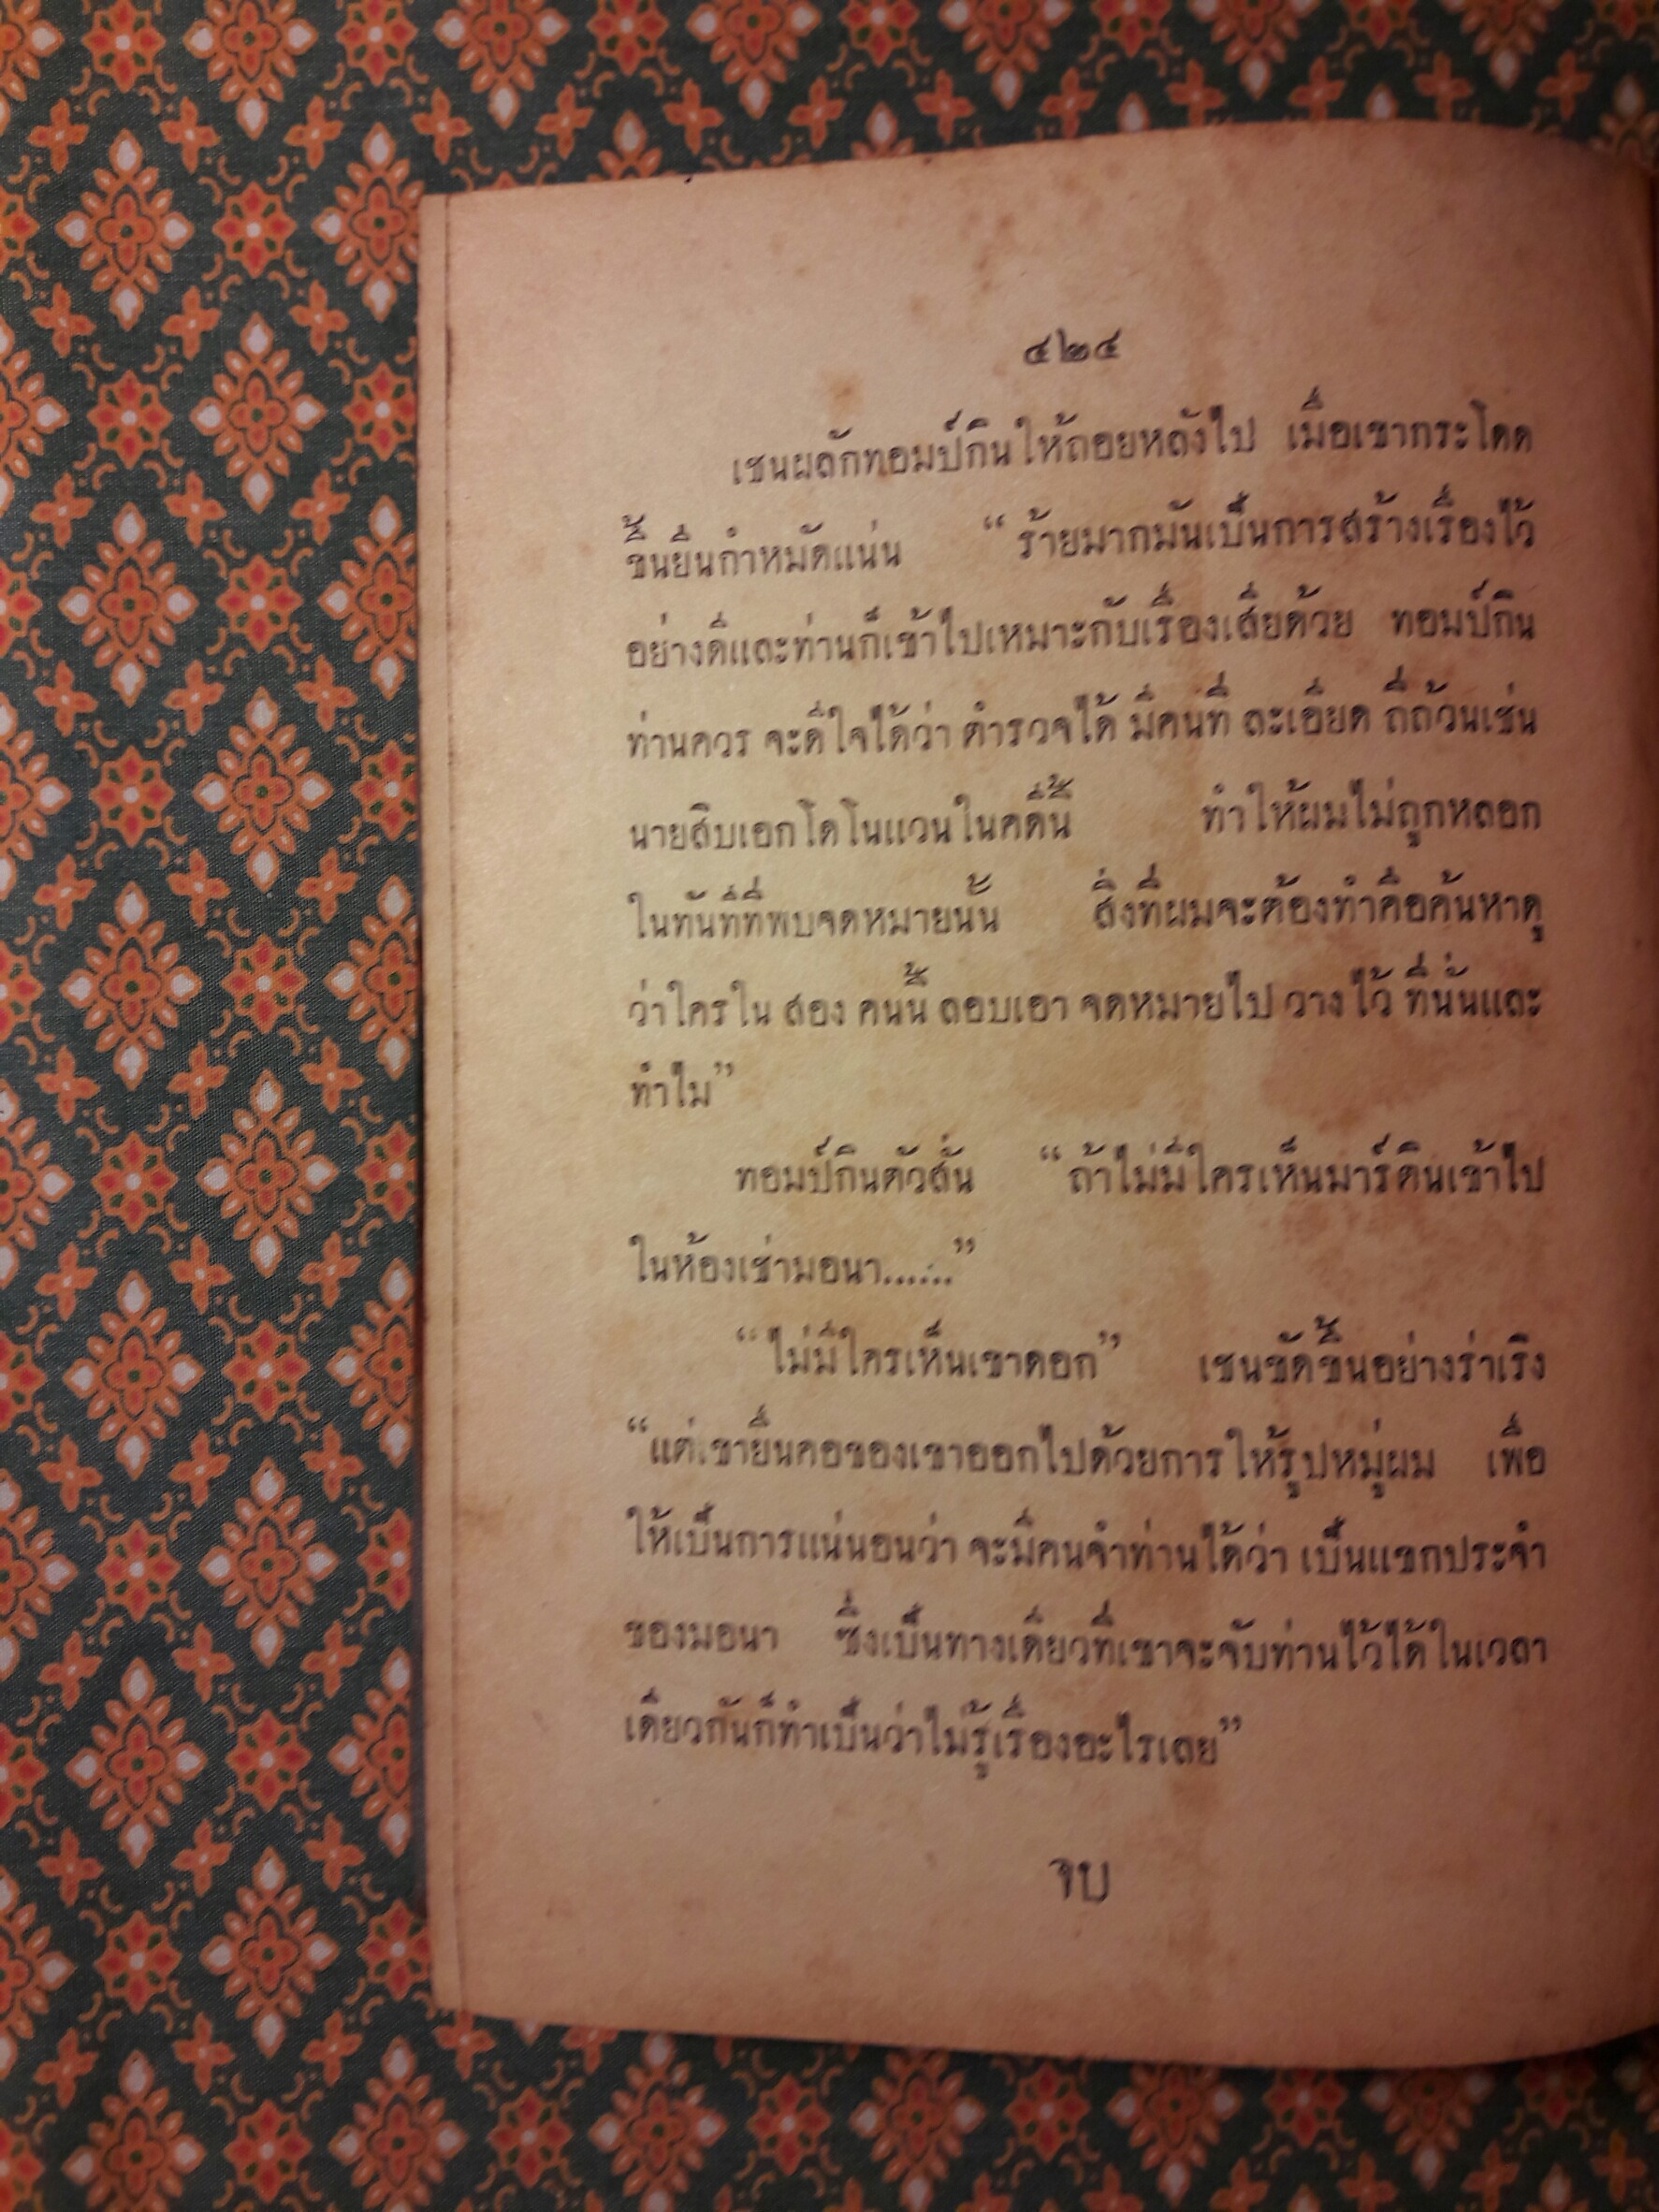 ๔๒๔
เชนผลักทอมป์กินให้ถอยหลังไป เมื่อเขากระโดด
ขึ้นยืนกำหมัดแน่น “ร้ายมากมันเป็นการสร้างเรื่องไว้
อย่างดีและท่านก็เข้าไปเหมาะกับเรื่องเสียด้วย ทอมป์กิน
ท่านควร จะดีใจได้ว่า ตำรวจได้ มีคนที่ ละเอียด ถี่ถ้วนเช่น
นายสิบเอกโดโนแวนในคดีนี้ ทำให้ผมไม่ถูกหลอก
ในทันทีที่พบจดหมายนั้น สิ่งที่ผมจะต้องทำคือค้นหาดู
ว่าใครใน สอง คนนี้ ลอบเอา จดหมายไป วางไว้ ที่นั่นและ
ทำไม”
ทอมป์กินตัวสั่น “ถ้าไม่มีใครเห็นมาร์ตินเข้าไป
ในห้องเช่ามอนา......”
“ไม่มีใครเห็นเขาดอก” เชนขัดขึ้นอย่างร่าเริง
“แต่เขายื่นคอของเขาออกไปด้วยการให้รูปหมู่ผม เพื่อ
ให้เป็นการแน่นอนว่า จะมีคนจำท่านได้ว่า เป็นแขกประจำ
ของมอนา ซึ่งเป็นทางเดียวที่เขาจะจับท่านไว้ได้ในเวลา
เดียวกันก็ทำเป็นว่าไม่รู้เรื่องอะไรเลย”
จบ